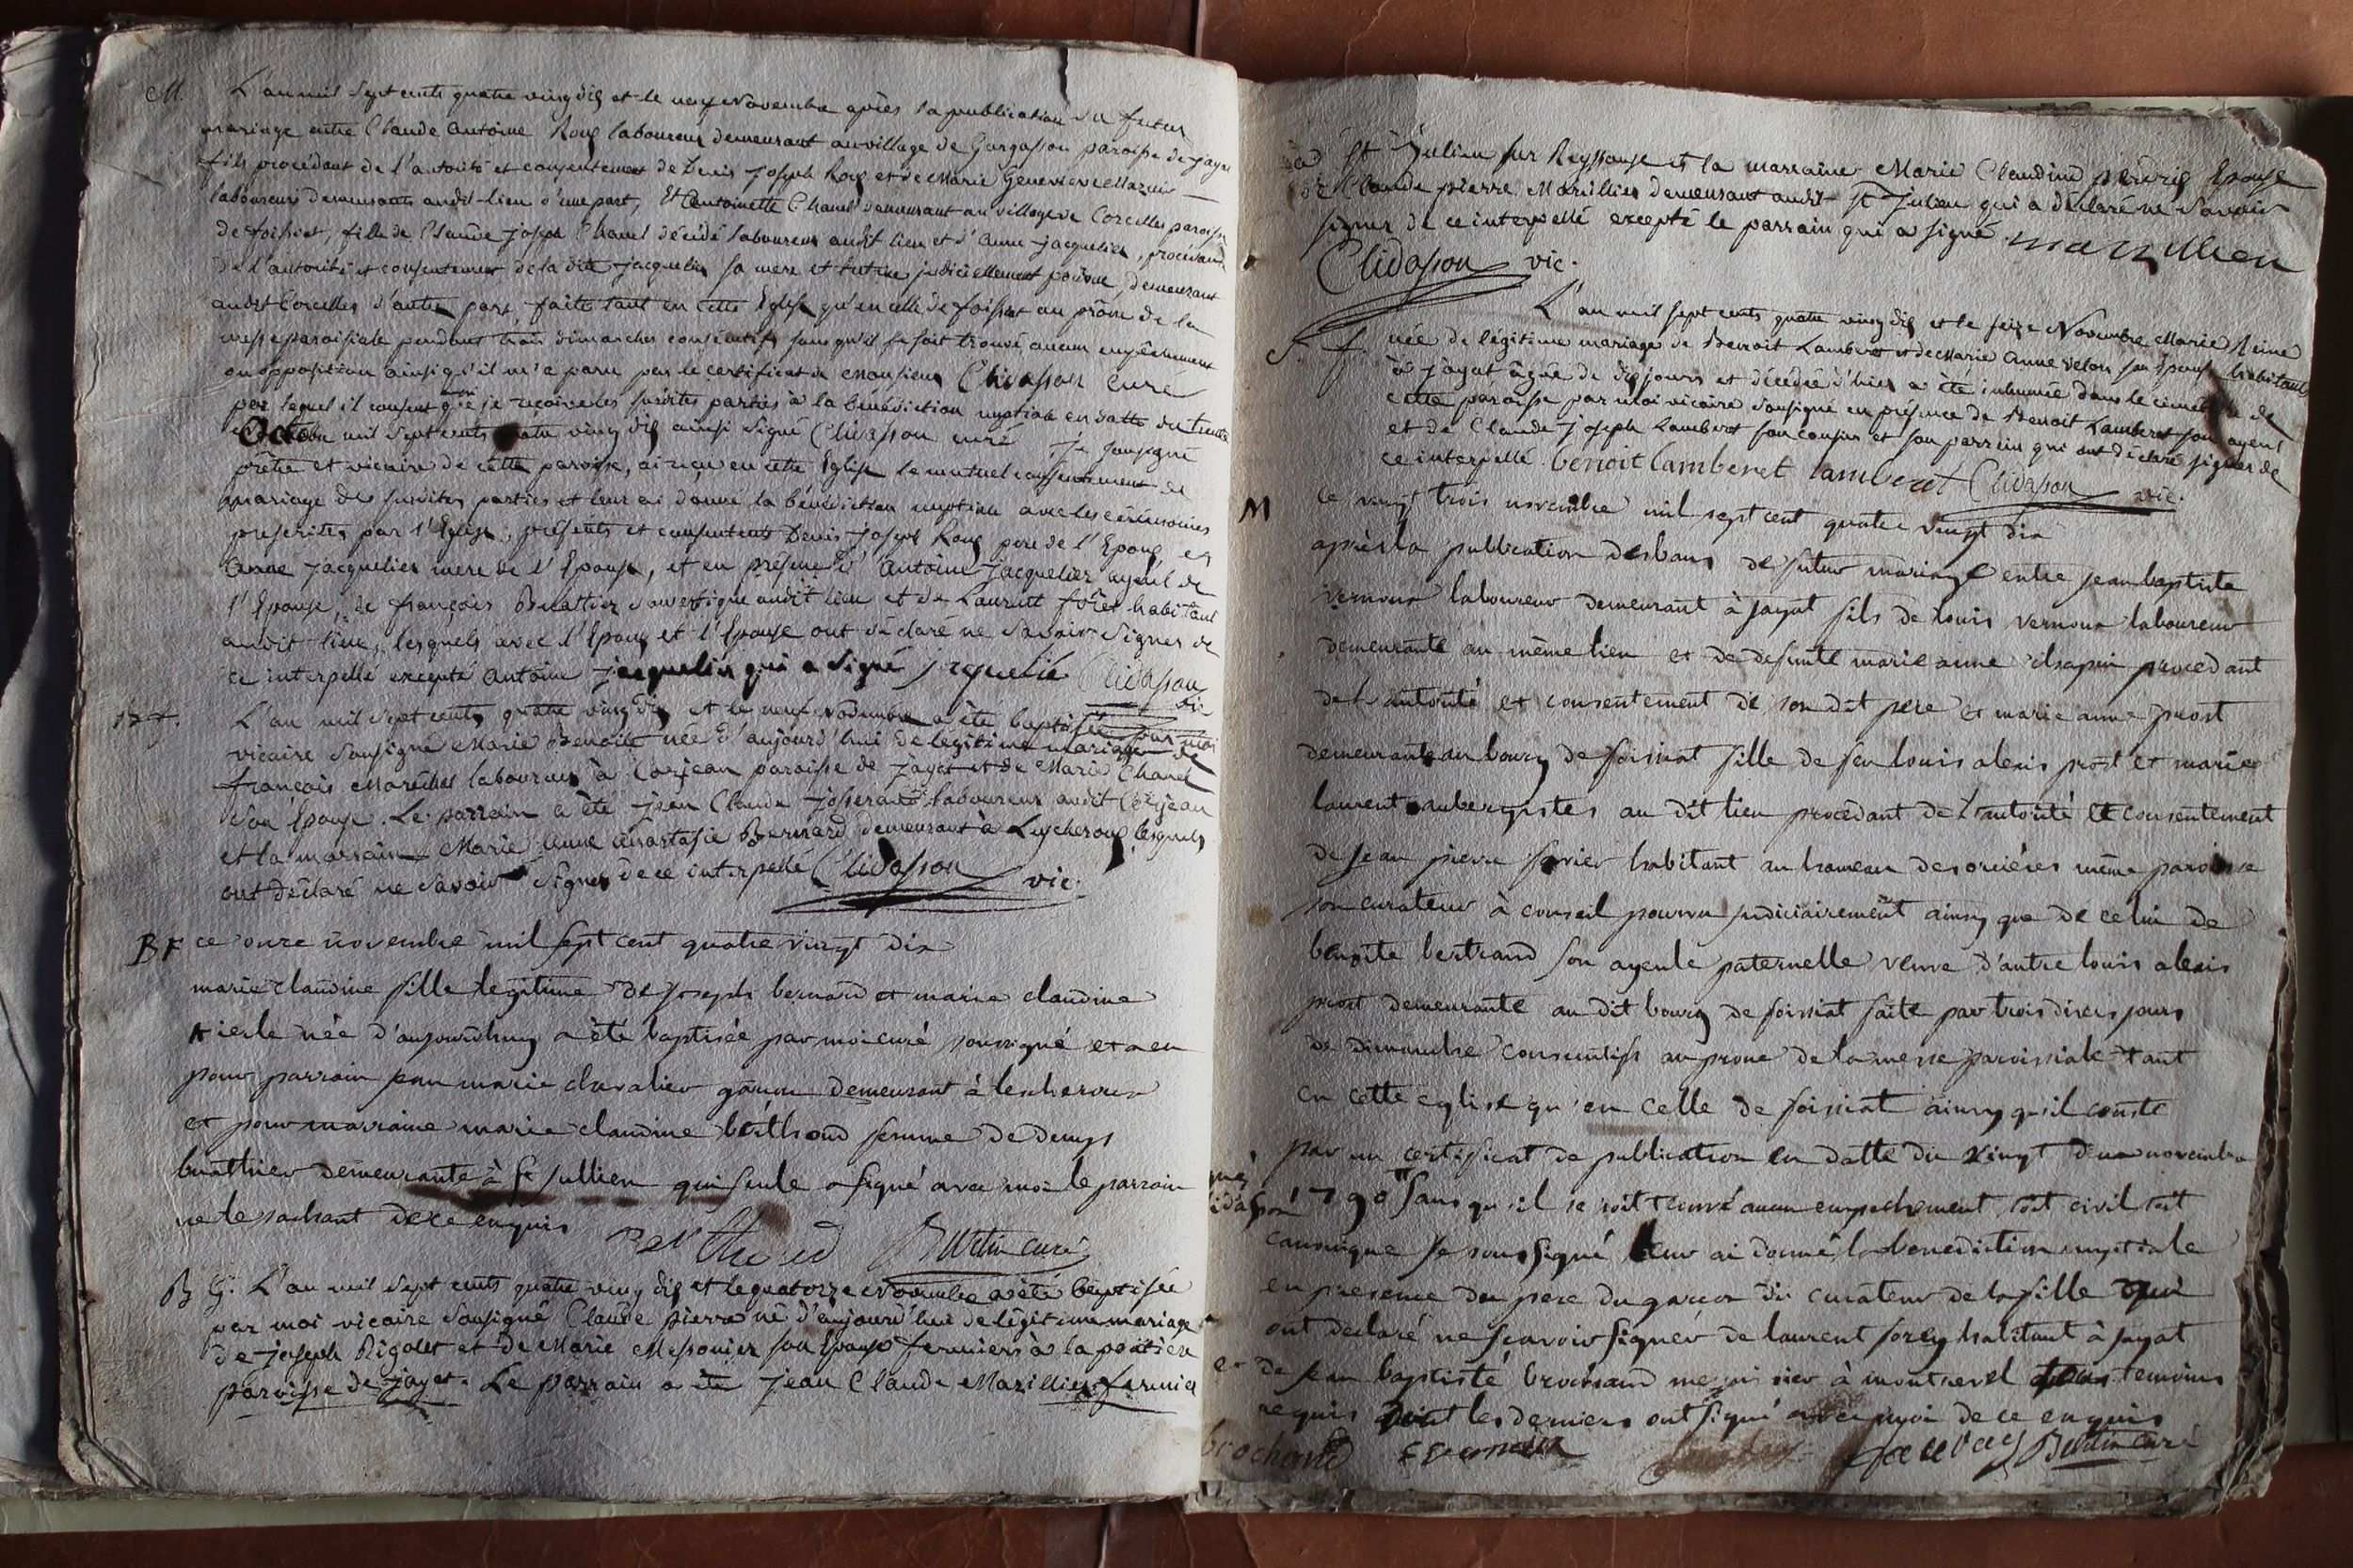 M. L'an mil sept cents quatre vingt dix et le neuf Novembre après la publication du futur
mariage entre Claude Antoine Roux laboureur demeurant au village de Gargasson paroisse de jayat
fils procédant de l'autorité et consentement de Denis joseph Roux et de Marie Geneviève Mazuir
laboureurs demeurants audit-lieu d'une part, Et Antoinette Chanel demeurant au village de Corcelles paroisse
de foissiat, fille de Claude joseph Chanel décédé laboureur audit lieu et d'Anne jacquelier, procédante
de l'autorité et consentement de la dite jacquelier sa mere et tutrice judiciellement pourvue, demeurant
audit Corcelles d'autre part, faite tant en cette Eglise qu'en celle de foissiat au prône de la
messe paroissiale pendant trois dimanches consécutifs sans qu'il se soit trouvé aucun empêchement
ou opposition ainsi qu'il m'a paru par le certificat de Monsieur Clidasson curé
par lequel il consent que je reçoive les susdites parties à la bénédiction nuptiale en datte du trente
Octobre mil sept cents quatre vingt dix ainsi signé Clidasson curé je soussigné
prêtre et vicaire de cette paroisse, ai reçu en cette Eglise le mutuel consentement de
mariage des susdites parties et leur ai donné la bénédiction nuptiale avec les cérémonies
prescrites par l'Eglise, présents et consentents Denis joseph Roux pere de l'Epoux et
Anne jacquelier mere de l'Epouse, et en présence d'Antoine jacquelier ayeul de
l'Epouse, de françois Buattier domestique audit lieu et de Laurent forêt habitant
audit lieu, lesquels avec l'Epoux et l'Epouse ont déclaré ne Savoir Signer de
ce interpellé excepté Antoine jacquelier qui a signé jacquelié Clidasson
vic
B f. L'an mil sept cents quatre vingt dix et le neuf novembre a été baptisée par moi
vicaire soussigné Marie Benoite née d'aujourd'hui de legitime mariage de
françois Maréchal laboureur à Corjean paroisse de jayat et de Marie Chanel
son Epouse. Le parrain a été jean Claude josserand laboureur audit Corjean
et la marraine Marie Anne Anastasie Bernard demeurant à Lescheroux lesquels
ont déclaré ne Savoir Signer de ce interpellé Clidasson vic.
B F ce onze novembre mil sept cent quatre vingt dix
marie claudine fille legitime de joseph bernard et marie claudine
née d'aujourdhuy a été baptisée par moi curé soussigné et a eu
pour parrain jean marie chevalier garçon demeurant à lescheroux
et pour marraine marie claudine berthoud femme de denys
buathier demeurante à st jullien qui seule a signé avec moi le parrain
ne le sachant de ce enquis Berthoud Burtin curé
B G. L'an mil sept cents quatre vingt dix et le quatorze Novembre a été baptisée
par moi vicaire soussigné Claude pierre né d'aujourd'hui de légitime mariage
de joseph Rigolet et de Marie Messonier son Epouse fermiers à la
paroisse de jayat. Le parrain a été jean Claude Marillier fermier
à St Julien sur Reyssouse et la marraine Marie Claudine perdrix Epouse
de Claude pierre Marillier demeurant audit St Julien qui a déclaré ne Savoir
signer de ce interpellé excepté le parrain qui a signé. marillier
Clidasson vic.
S. f. L'an mil sept cents quatre vingt dix et le seize Novembre Marie Reine
née de légitime mariage de Benoit Lamberet et de Marie Anne Velon son Epouse habitants
à jayat âgée de dix jours et décédée d'hier a été inhumée dans le cimetière de
cette paroisse par moi vicaire soussigné en présence de Benoit Lamberet son ayeul
et de Claude joseph Lamberet son cousin et son parrain qui ont déclaré signer de
ce interpellé. benoit lamberet lamberet Clidasson vic.
M ce vingt trois novembre mil sept cent quatre vingt dix
après la publication des bans de futur mariage entre jean baptiste
vernoux laboureur demeurant à jayat fils de louis vernoux laboureur
demeurante au même lieu et de defunte marie anne procedant
de l'autorité et consentement de son dit pere et marie anne prost
demeurante au bourg de foissiat fille de feu louis alexis prost et marie
laurent aubergistes au dit lieu procedant de l'autorité et consentement
de jean pierre habitant au hameau des orcières même paroisse
son curateur à conseil pourvu judiciairement ainsy que de celui de
benoite bertrand son ayeule paternelle veuve d'autre louis alexis
prost demeurante au dit bourg de foissiat faite par trois divers jours
de dimanche consecutifs au prone de la messe paroissiale tant
en cette eglise qu'en celle de foissiat ainsy qu'il conste
par un certificat de publication en datte du vingt deux novembre
1790 sans qu'il se soit trouvé aucun empechement soit civil soit
canonique je soussigné leur ai donné la benediction nuptiale
en presence du pere du garçon du curateur de la fille qui
ont declaré ne sçavoir signer de laurent forey habitant à jayat
et de jean baptiste brochand menuisier à montrevel temoins
requis dont les derniers ont signé avec moi de ce enquis
brochand Burtin curé